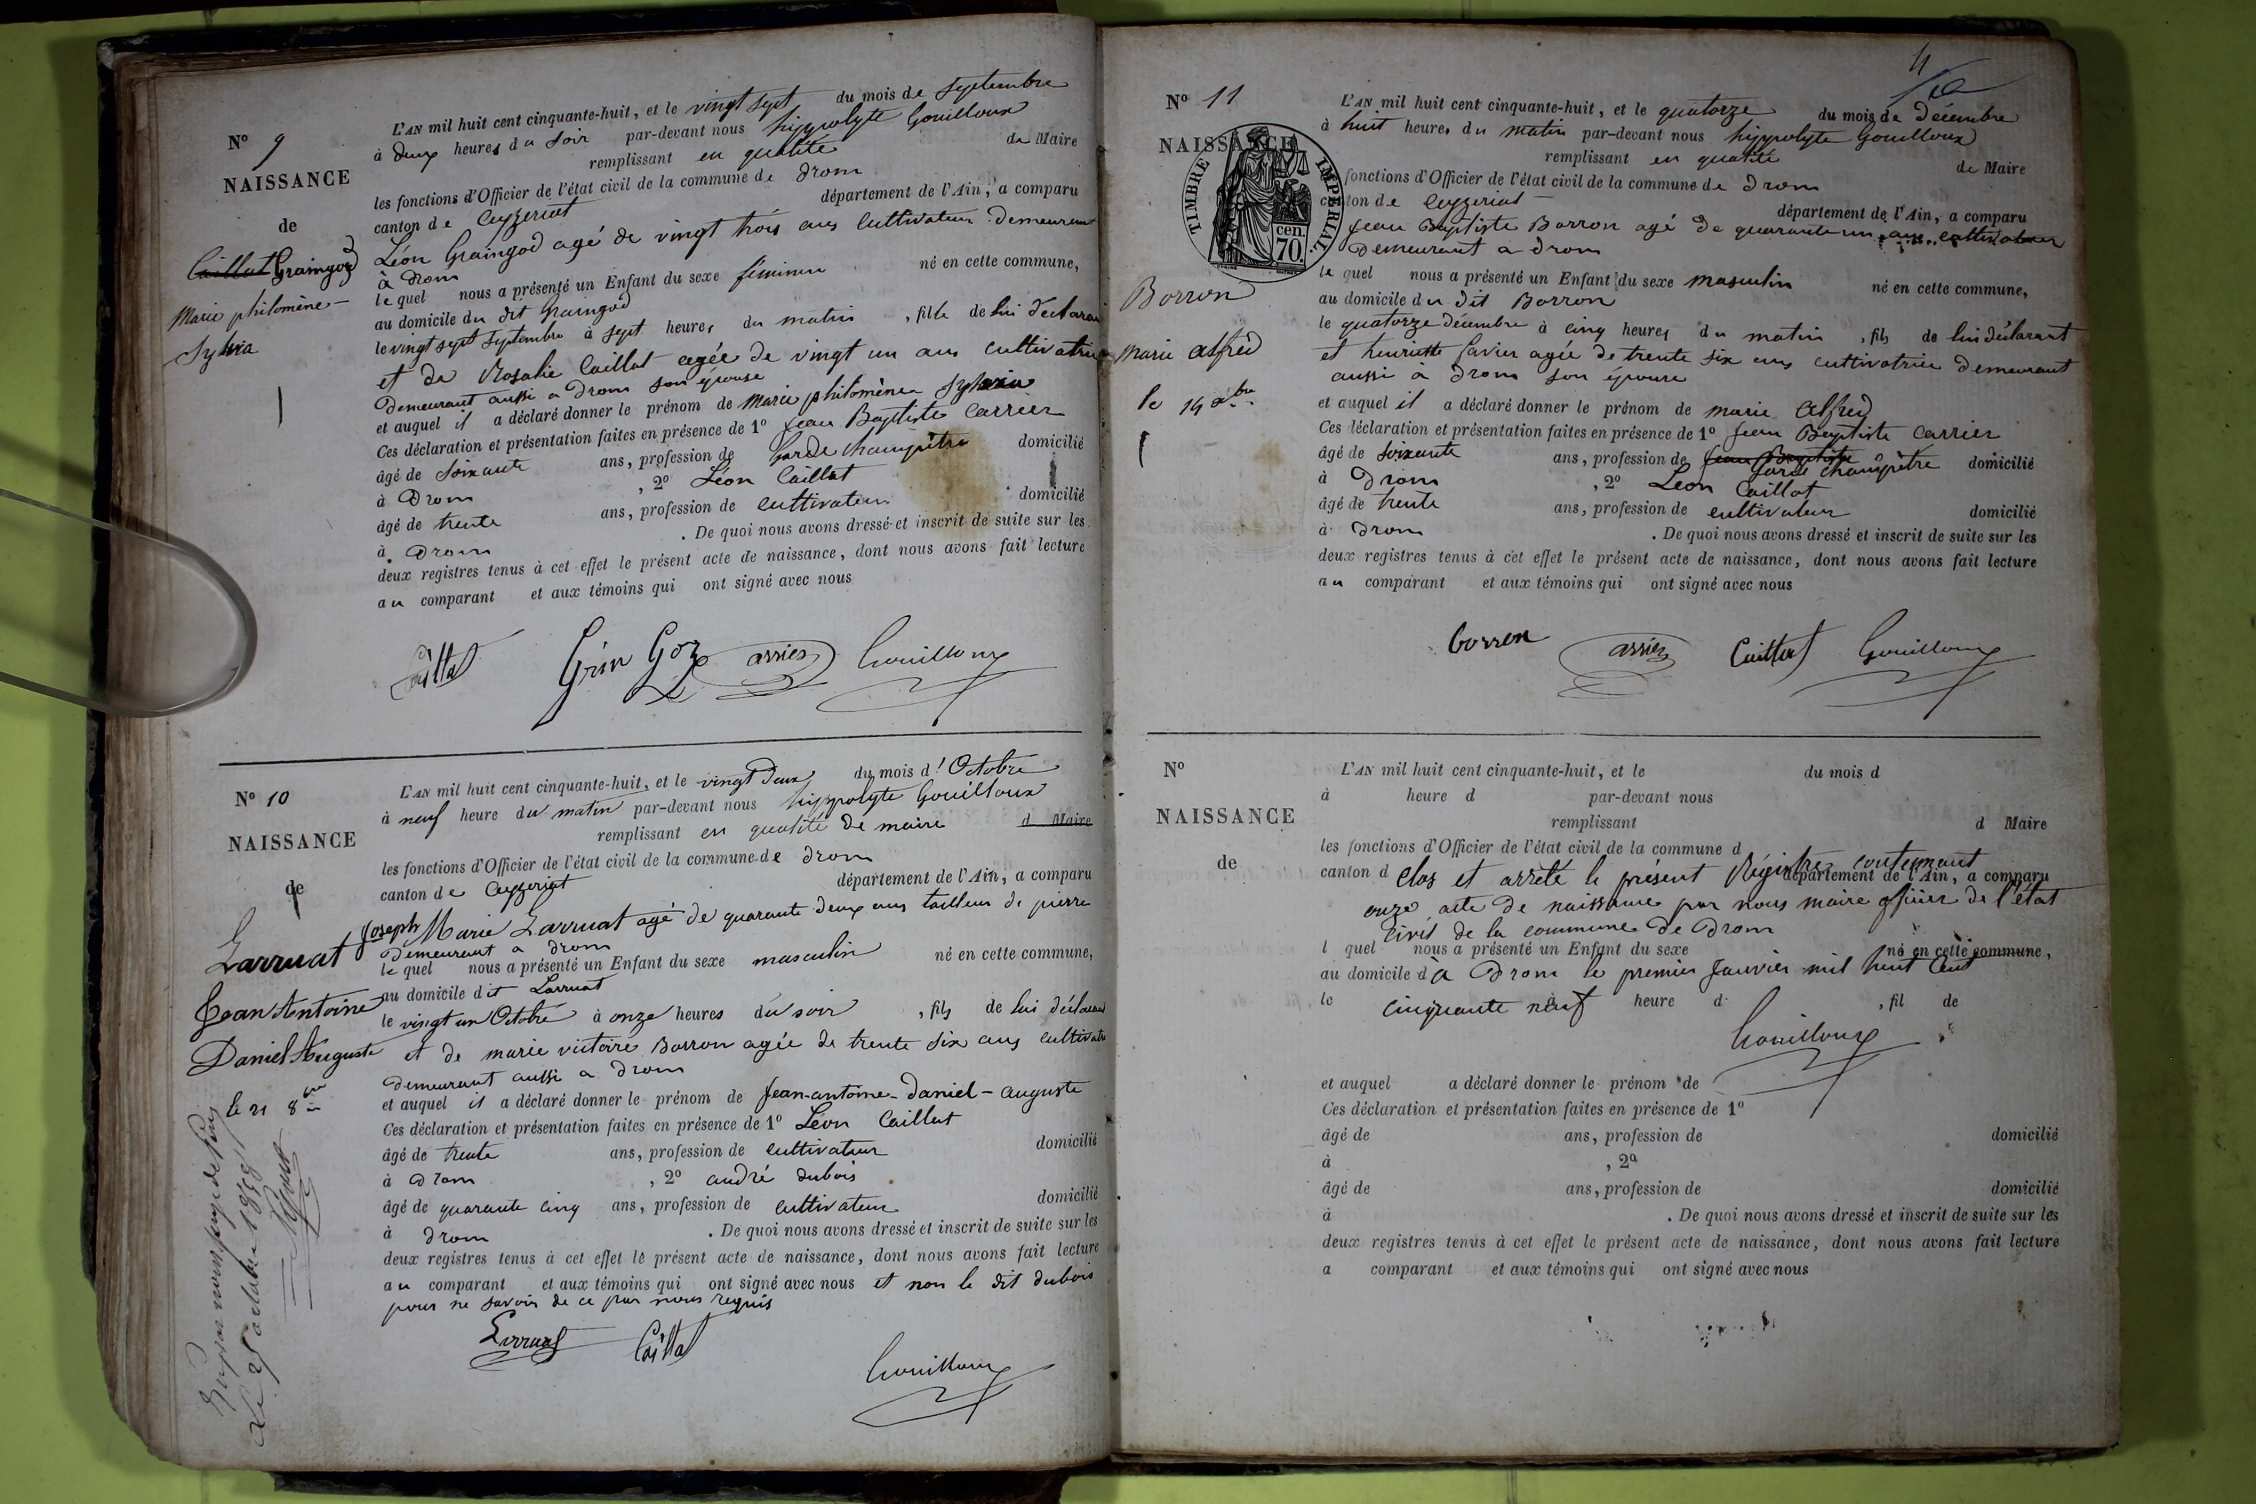 N° 9
NAISSANCE
de
Caillat Graingod
Marie philomène
Sylvia
L'AN mil huit cent cinquante-huit, et le vingt sept du mois de Septembre
à deux heures du soir par-devant nous hippolyte Gouilloux
remplissant en qualité de Maire
les fonctions d'Officier de l'état civil de la commune de Drom
canton de Ceyzeriat département de l'Ain, a comparu
Léon Graingod agé de vingt trois ans cultivateur demeurant
à Drom
le quel nous a présenté un Enfant du sexe féminin né en cette commune,
au domicile du dit Graingod
le vingt sept Septembre à sept heures du matin, fille de lui déclarant
et de Rosalie Caillat agée de vingt un ans cultivatrice
Demeurant aussi a Drom son épouse
et auquel il a déclaré donner le prénom de Marie philomène Sylvia
Ces déclaration et présentation faites en présence de 1° Jean Baptiste Carrier
âgé de soixante ans, profession de Garde champêtre domicilié
à Drom, 2° Léon Caillat
âgé de trente ans, profession de cultivateur domicilié
à Drom. De quoi nous avons dressé et inscrit de suite sur les
deux registres tenus à cet effet le présent acte de naissance, dont nous avons fait lecture
au comparant et aux témoins qui ont signé avec nous
Caillat Grin Goz Carrier Gouilloux
N° 10
NAISSANCE
de
Larruat
Jean Antoine
Daniel Auguste
le 21 8bre
Le 25 octobre 1858
L'AN mil huit cent cinquante-huit, et le vingt Deux du mois d'Octobre
à neuf heure du matin par-devant nous hippolyte Gouilloux
remplissant en qualité de maire d Maire
les fonctions d'Officier de l'état civil de la commune de Drom
canton de Ceyzeriat département de l'Ain, a comparu
Joseph Marie Larruat agé de quarante deux ans tailleur de pierre
Demeurant a Drom
le quel nous a présenté un Enfant du sexe masculin né en cette commune,
au domicile dit Larruat
le vingt un Octobre à onze heures du soir, fils de lui déclarant
et de marie victoire Borron agée de trente six ans cultivatrice
Demeurant aussi a Drom
et auquel il a déclaré donner le prénom de Jean-antoine-Daniel-auguste
Ces déclaration et présentation faites en présence de 1° Léon Caillat
âgé de trente ans, profession de cultivateur domicilié
à Drom, 2° andré dubois
âgé de quarante cinq ans, profession de cultivateur domicilié
à Drom. De quoi nous avons dressé et inscrit de suite sur les
deux registres tenus à cet effet le présent acte de naissance, dont nous avons fait lecture
au comparant et aux témoins qui ont signé avec nous et non le dit dubois
pour ne savoir de ce par nous requis
Larruat Caillat
Gouilloux
11
N° 11
NAISSANCE
TIMBRE IMPÉRIAL.
70. cen.
Borron
Marie Alfred
le 14 xbre
L'AN mil huit cent cinquante-huit, et le quatorze du mois de Décembre
à huit heures du matin par-devant nous hippolyte Gouilloux
remplissant en qualité de Maire
fonctions d'Officier de l'état civil de la commune de Drom
canton de Ceyzeriat département de l'Ain, a comparu
Jean Baptiste Borron agé de quarante un ans cultivateur
Demeurant a Drom
le quel nous a présenté un Enfant du sexe masculin né en cette commune,
au domicile du dit Borron
le quatorze décembre à cinq heures du matin, fils de lui déclarant
et henriette Favier agée de trente six ans cultivatrice Demeurant
aussi a Drom son épouse
et auquel il a déclaré donner le prénom de marie Alfred
Ces déclaration et présentation faites en présence de 1° Jean Baptiste Carrier
âgé de soixante ans, profession de Jean Baptiste Garde champêtre domicilié
à Drom, 2° Léon Caillat
âgé de trente ans, profession de cultivateur domicilié
à Drom. De quoi nous avons dressé et inscrit de suite sur les
deux registres tenus à cet effet le présent acte de naissance, dont nous avons fait lecture
au comparant et aux témoins qui ont signé avec nous
borron Carrier Caillat Gouilloux
N°
NAISSANCE
de
L'AN mil huit cent cinquante-huit, et le du mois d
à heure d par-devant nous
remplissant d Maire
les fonctions d'Officier de l'état civil de la commune d
canton d département de l'Ain, a comparu
Clos et arrêté le présent Régistre contennant
onze acte de naissance par nous maire officier de l'état
civil de la commune de Drom
l quel nous a présenté un Enfant du sexe né en cette commune,
au domicile d à Drom le premier Janvier mil huit Cent
le cinquante neuf heure d, fil de
Gouilloux
et auquel a déclaré donner le prénom de
Ces déclaration et présentation faites en présence de 1°
âgé de ans, profession de domicilié
à, 2°
âgé de ans, profession de domicilié
à. De quoi nous avons dressé et inscrit de suite sur les
deux registres tenus à cet effet le présent acte de naissance, dont nous avons fait lecture
a comparant et aux témoins qui ont signé avec nous